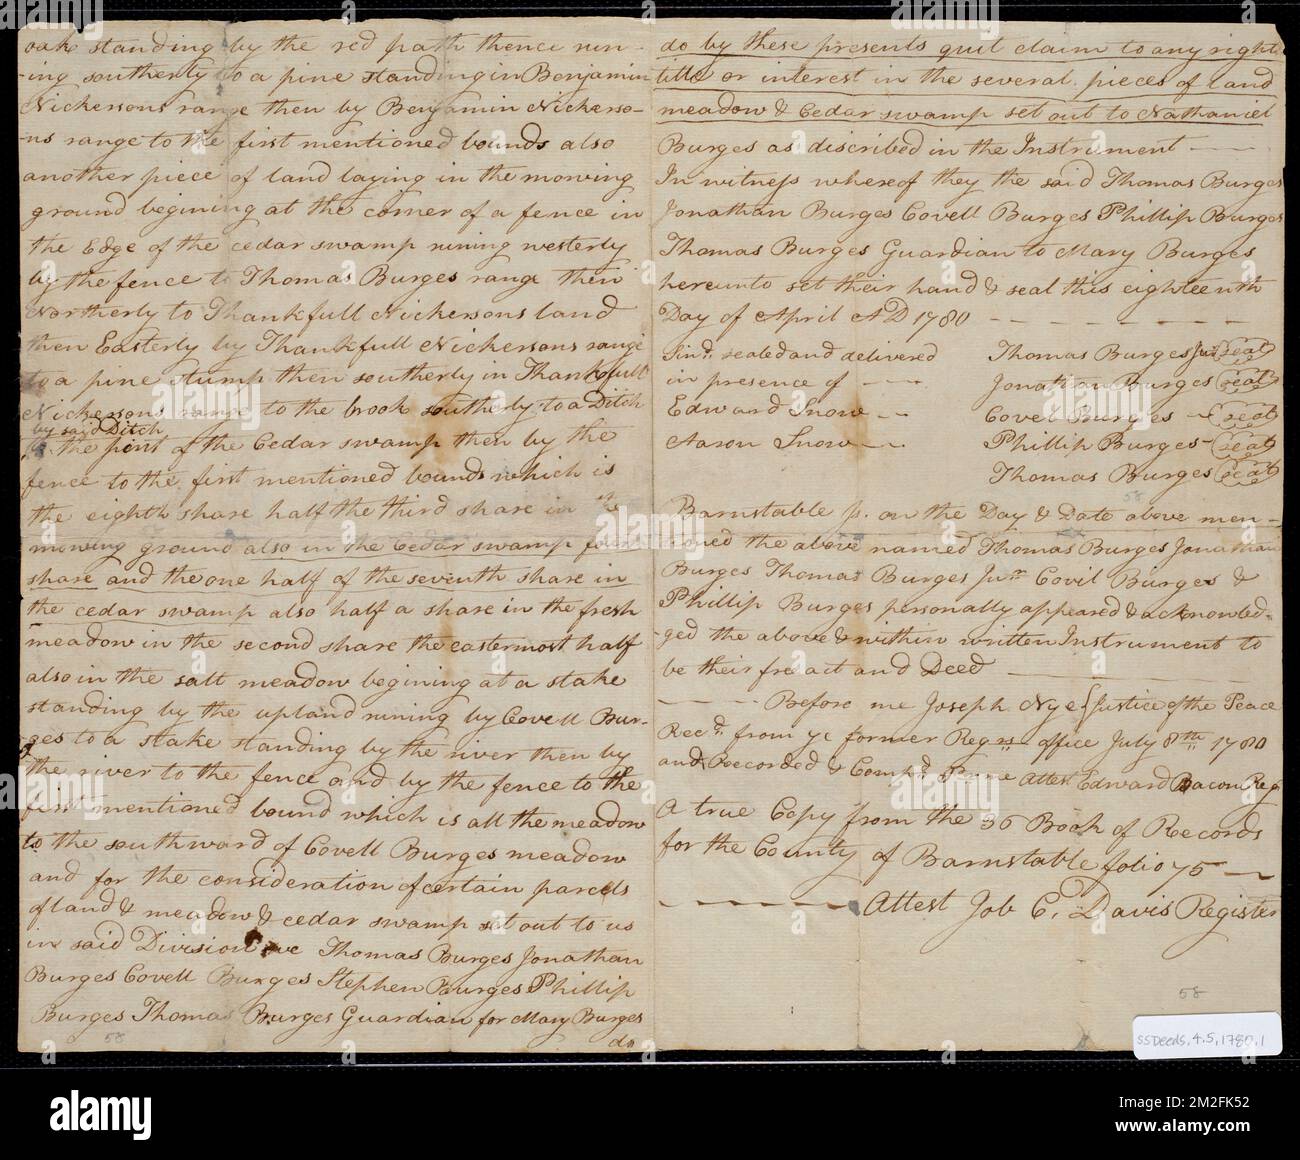 oak standing by the red path thence run-
-ing southerly to a pine standing in Benjamin
Nickersons range then by Benjamin Nickerso-
-ns range to the first mentioned bounds also
another piece of land laying in the mowing
ground begining at the corner of a fence in
the Edge of the cedar swamp runing westerly
by the fence to Thomas Burges range then
Northerly to Thankfull Nickersons land
then Easterly by Thankfull Nickersons range
to a pine stump then southerly in Thankfull
Nickersons range to the brook southerly to a Ditch
by said Ditch
to the pint of the Cedar swamp then by the
fence to the first mentioned bounds which is
the eighth share half the third share in the
mowing ground also in the Cedar swamp first
share and the one half of the seventh share in
the cedar swamp also half a share in the fresh
meadow in the second share the eastermost half
also in the salt meadow begining at a stake
standing by the upland runing by Covell Bur-
ges to a stake standing by the river then by
the river to the fence and by the fence to the
first mentioned bound which is all the meadow
to the southward of Covell Burges meadow
and for the consideration of certain parcels
of land & meadow & cedar swamp set out to us
in said Division we Thomas Burges Jonathan
Burges Covell Burges Stephen Burges Phillip
Burges Thomas Burges Guardian for Mary Burges
do
58
do by these presents quit claim to any right
title or interest in the several pieces of land
meadow & Cedar swamp set out to Nathaniel
Burges as discribed in the Instrument —
In witness whereof they the said Thomas Burges
Jonathan Burges Covell Burges Phillip Burges
Thomas Burges Guardian to Mary Burges
hereunto set their hand & seal this eighteenth
Day of April AD 1780 - - - - - -
Sind. sealed and delivered
in presence of - - -
Edward Snow - -
Aaron Snow - -
Thomas Burges Jur seal
Jonathan Burges seal
Covel Burgies - seal
Phillip Burges - seal
Thomas Burges seal
58
Barnstable ss. on the Day & Date above men-
tioned the above named Thomas Burges Jonathan
Burges Thomas Burges Junr Covil Burges &
Phillip Burges personally appeared & acknowled-
-ged the above & within written Instrument to
be their free act and Deed
- - - - Before me Joseph Nye Justice of the Peace
Recd. from ye former Regrs office July 8th 1780
and Recorded & Compd. Attest Edward Bacon Reg
A true Copy from the 36 Book of Records
for the County of Barnstable folio 75 —
- - - - - - Attest Job C. Davis Register
58
SSDeeds.4.5.1780.1
alamy
Image ID: 2M2FK52
www.alamy.com